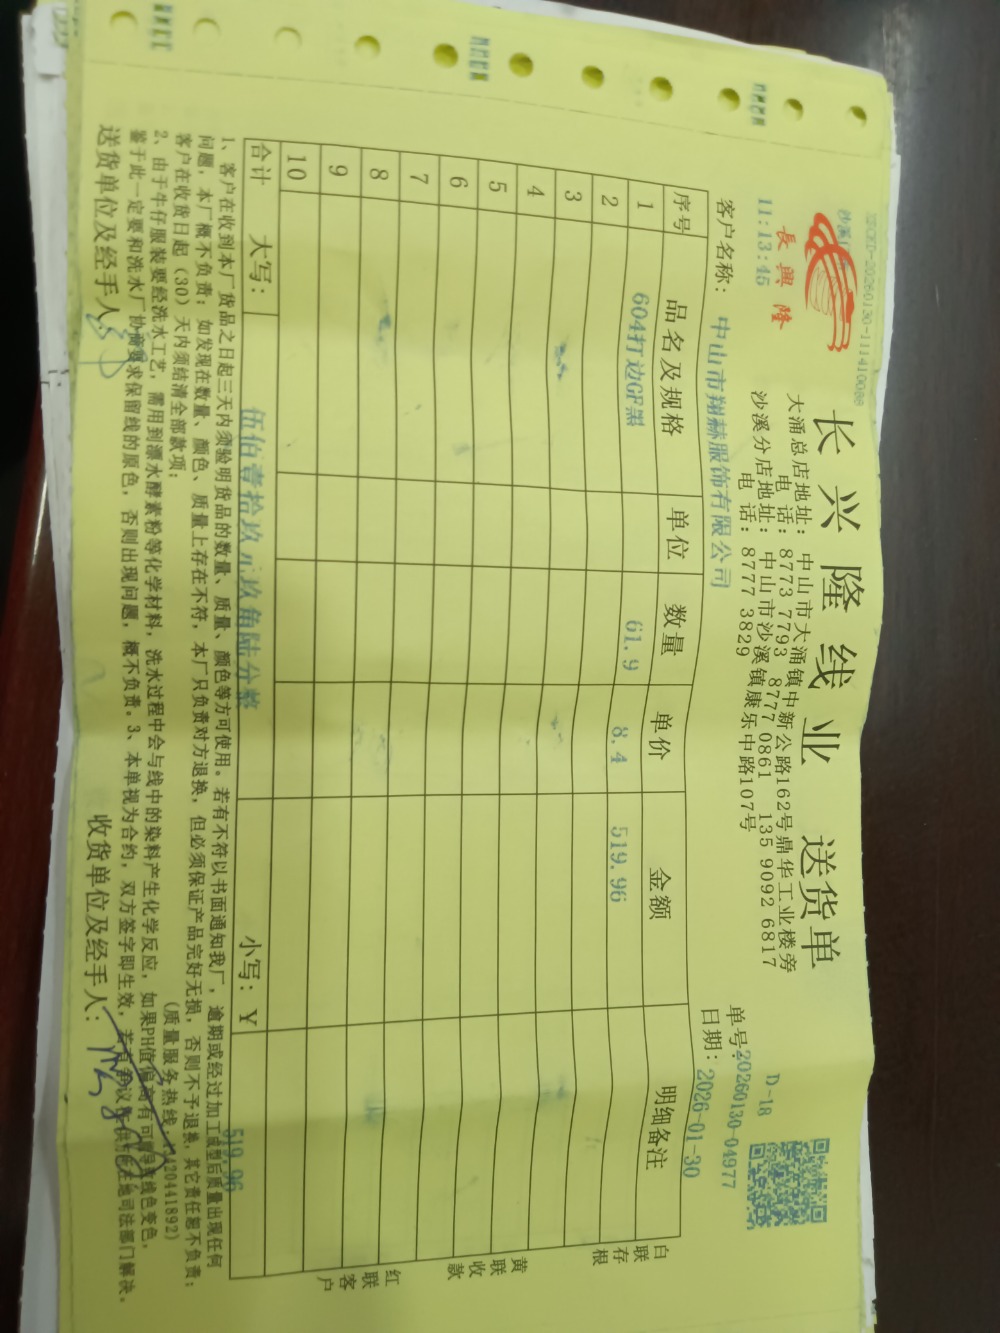 长兴隆线业 送货单
長興隆
11:13:45
大涌总店地址：中山市大涌镇中新公路162号鼎华工业楼旁
电 话：8773 7793 8777 0861 135 9092 6817
沙溪分店地址：中山市沙溪镇康乐中路107号
电 话：8777 3829
D-18
单号：20260130-04977
客户名称：中山市翔赫服饰有限公司
日期：2026-01-30
序号 品名及规格 单位 数量 单价 金额 明细备注
1 604打边GF黑 61.9 8.4 519.96
2
3
4
5
6
7
8
9
10
合计 大写：伍佰壹拾玖元玖角陆分整 小写：￥519.96
白联存根
黄联收款
红联客户
1、客户在收到本厂货品之日起三天内须验明货品的数量、质量、颜色等方可使用。若有不符以书面通知我厂，逾期或经过加工成型后质量出现任何
问题，本厂概不负责；如发现在数量、颜色、质量上存在不符，本厂只负责对方退换，但必须保证产品完好无损，否则不予退换，其它责任恕不负责；
客户在收货日起（30）天内须结清全部款项；
2、由于牛仔服装要经洗水工艺，需用到漂水酵素粉等化学材料，洗水过程中会与线中的染料产生化学反应，如果PH值偏高有可导致线色变色，
鉴于此一定要和洗水厂协商要求保留线的原色，否则出现问题，概不负责。3、本单视为合约，双方签字即生效，若有争议 供方所在地司法部门解决。
送货单位及经手人：
收货单位及经手人：